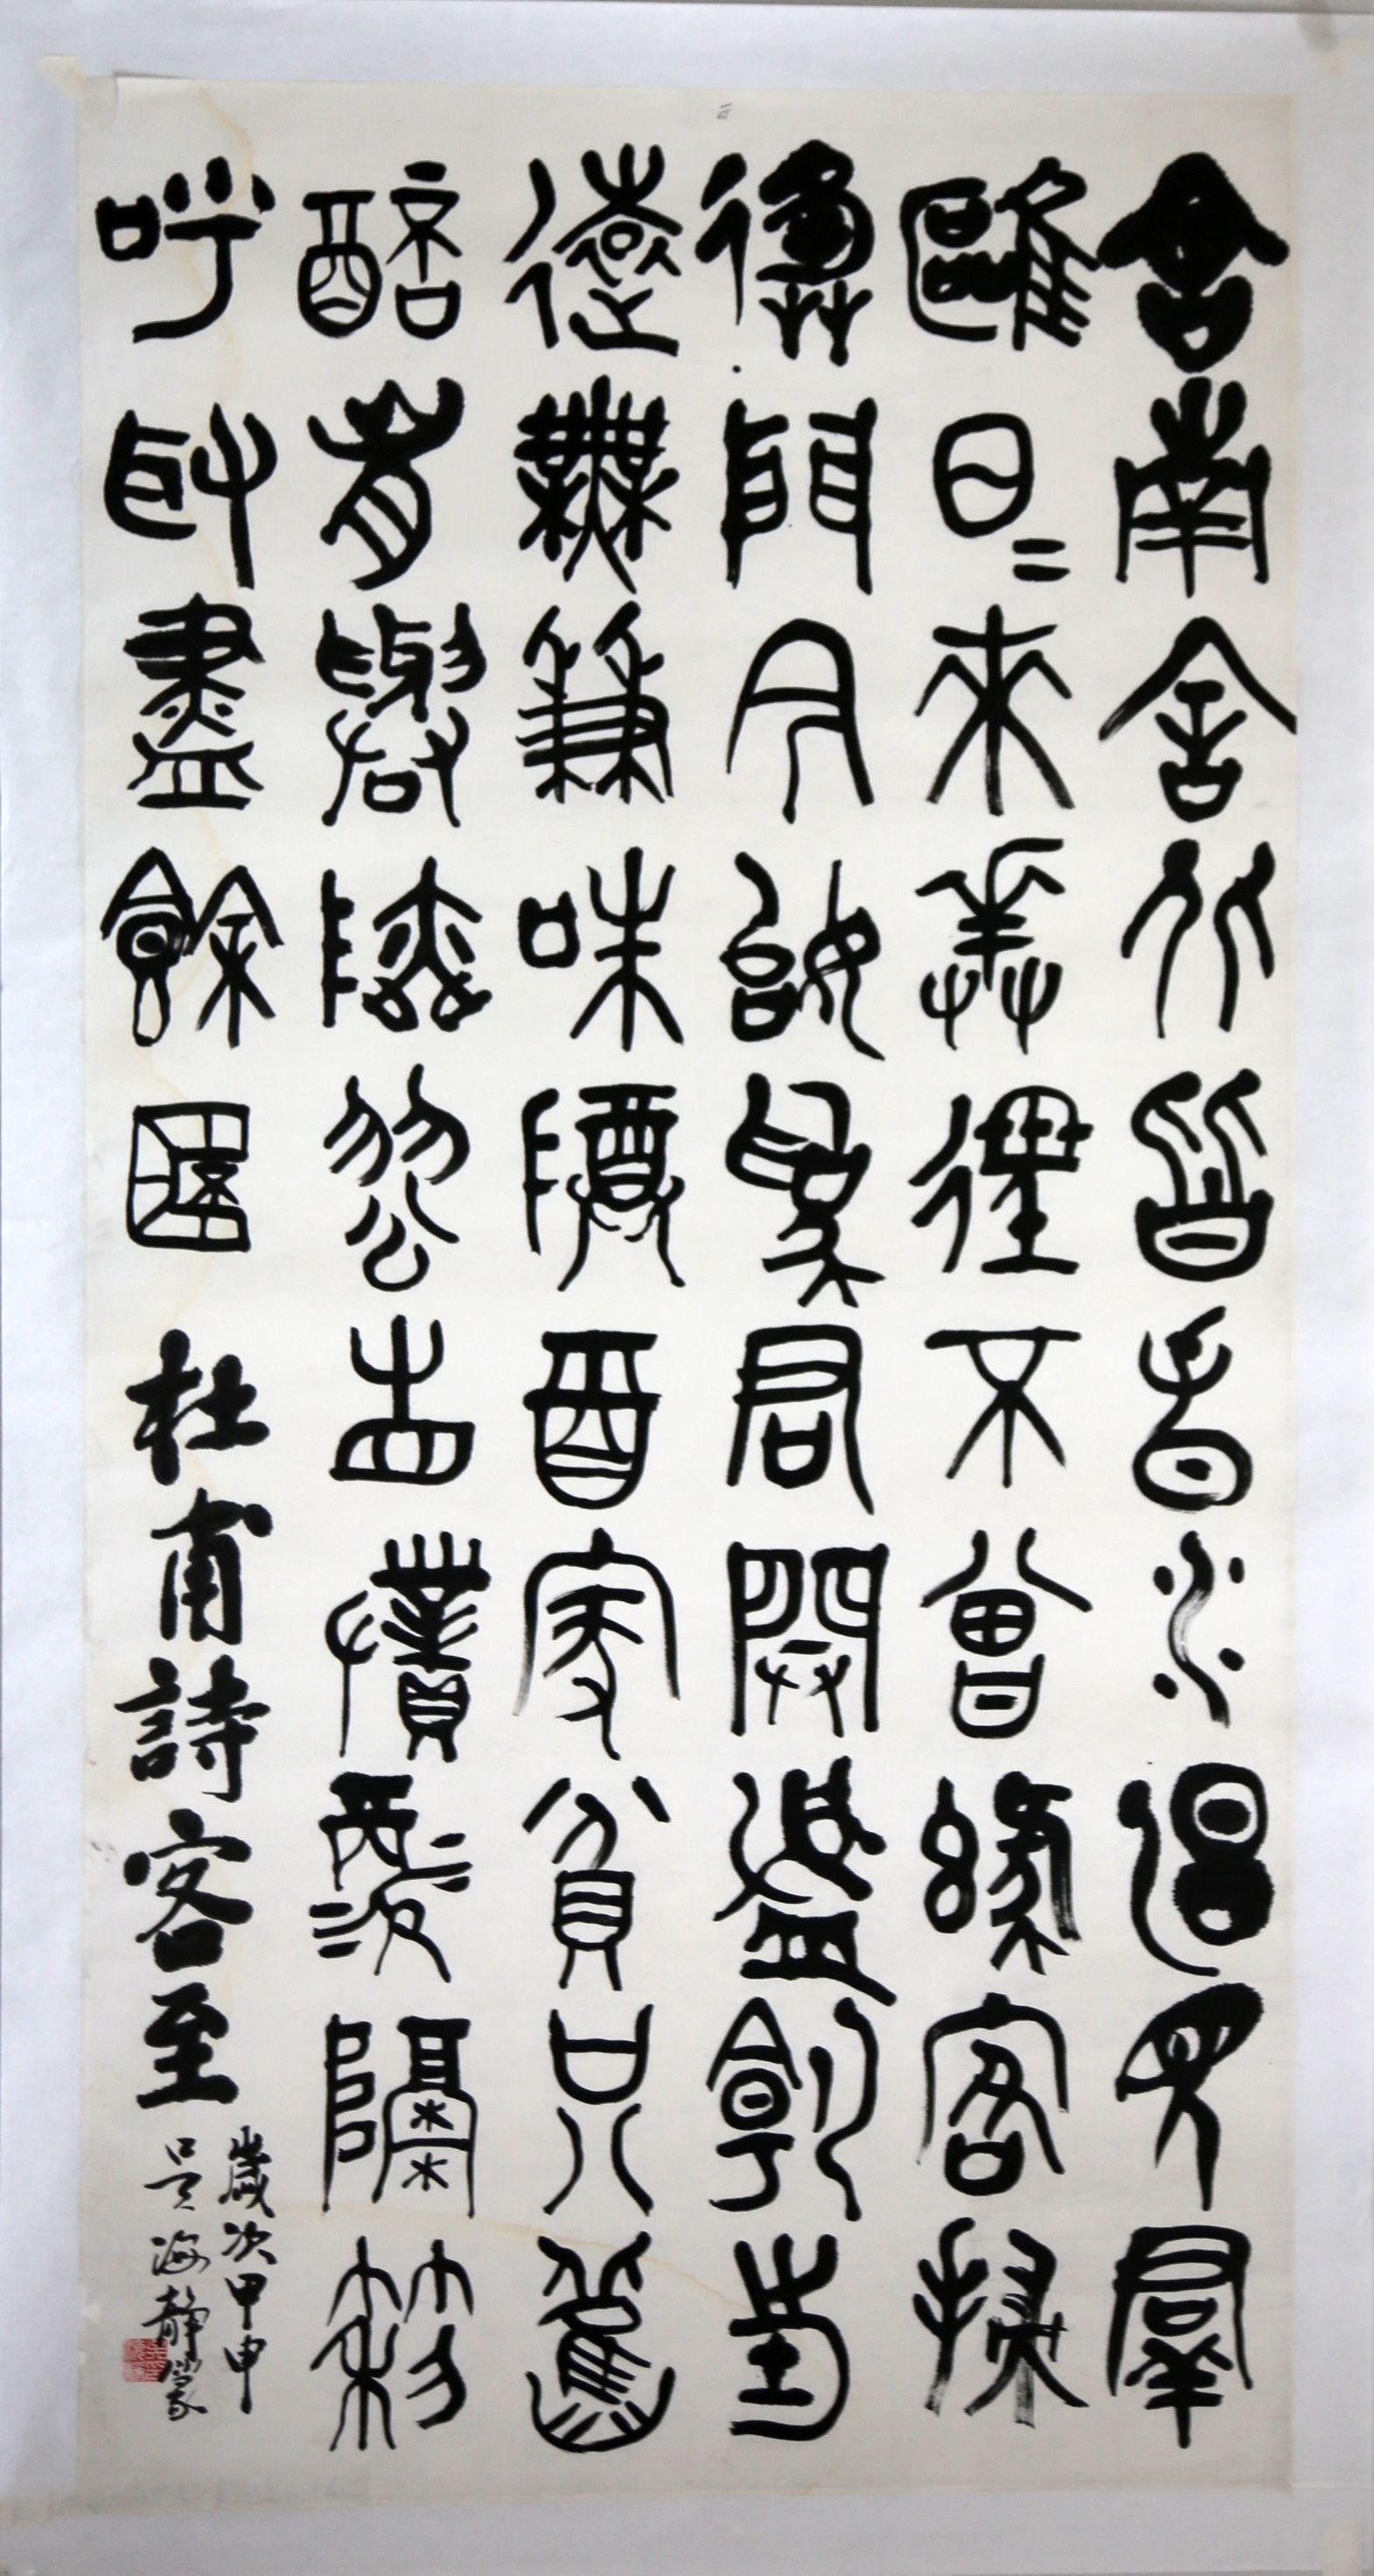 舍南舍北皆春水但見群
鷗日日來花徑不曾緣客掃
蓬門今始為君開盤飧市
遠無兼味樽酒家貧只舊
醅肯與鄰翁相對飲隔籬
呼取盡餘杯 杜甫詩客至
歲次甲申
吳海靜篆